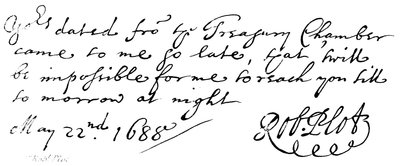 Yors dated fro ye Treasury Chamber
came to me so late, that 'twill
be impossible for me to reach you till
to morrow at night
May 22nd. 1688
Rob. Plot